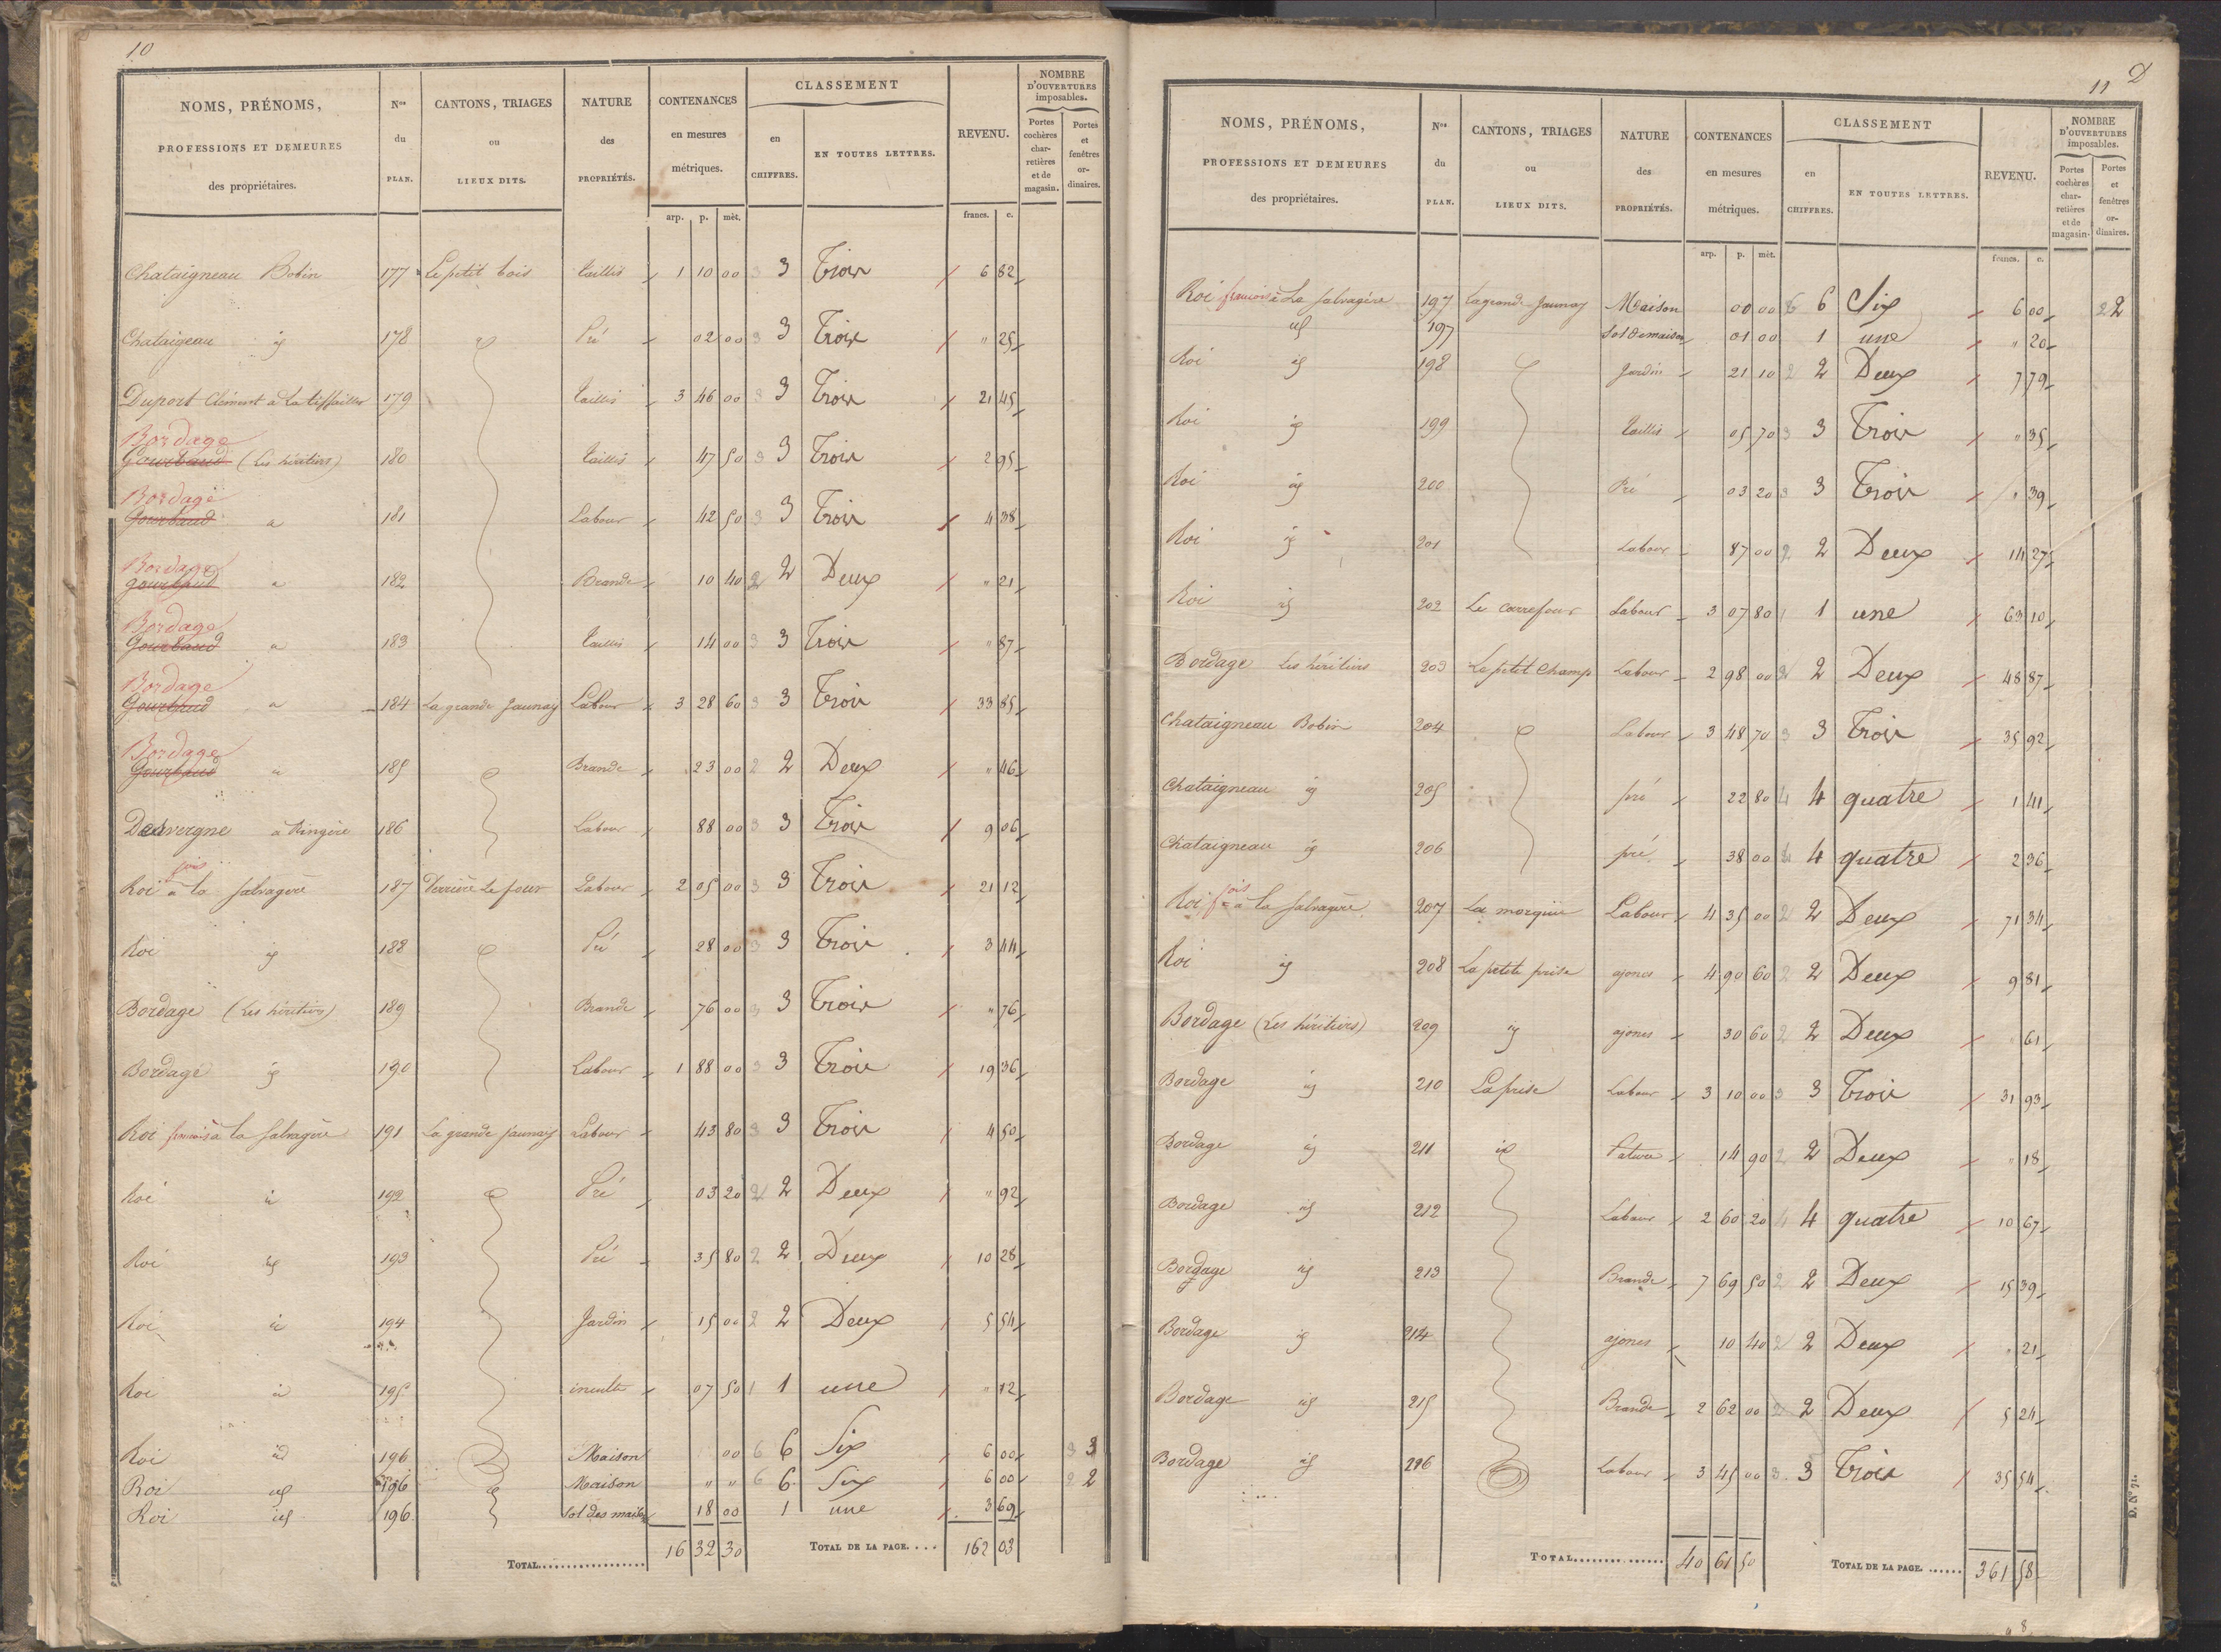 10
NOMS, PRÉNOMS, PROFESSIONS ET DEMEURES des propriétaires. Nos du PLAN. CANTONS, TRIAGES ou LIEUX DITS. NATURE des PROPRIÉTÉS. CONTENANCES en mesures métriques. CLASSEMENT en CHIFFRES. EN TOUTES LETTRES. REVENU. NOMBRE D'OUVERTURES imposables. Portes cochères charretières et de magasin. Portes et fenêtres ordinaires.
arp. p. mèt. francs. c.
Chataigneau Bobin 177 Le petit bois taillis 1 10 00 3 3 Trois 6 82
Chataigneau id 178 id Pré 02 00 3 3 Trois " 25
Duport Clément à La tiffailler 179 taillis 3 46 00 3 3 Trois 21 45
Bordage
Gourbaud (Les héritiers) 180 taillis 47 50 3 3 Trois 2 95
Bordage
Gourbaud 181 Labour 42 50 3 3 Trois 4 38
Bordage
Gourbaud 182 Brande 10 40 2 2 Deux " 21
Bordage
Gourbaud 183 taillis 14 00 3 3 Trois " 87
Bordage
Gourbaud 184 La grande Jaunay Labour 3 28 60 3 3 Trois 33 85
Bordage
Gourbaud 185 id Brande 23 00 2 2 Deux " 46
Dauvergne à Ringère 186 Labour 88 00 3 3 Trois 9 06
fois
Roi à la Salvagère 187 Derrière Le four Labour 2 05 00 3 3 Trois 21 12
Roi id 188 id Pré 28 00 3 3 Trois 3 44
Bordage (Les héritiers) 189 Brande 76 00 3 3 Trois " 76
Bordage id 190 Labour 1 88 00 3 3 Trois 19 36
Roi francois à la Salvagère 191 La grande Jaunay Labour 43 80 3 3 Trois 4 50
Roi id 192 id Pré 03 20 2 2 Deux " 92
Roi id 193 Pré 35 80 2 2 Deux 10 28
Roi id 194 Jardin 15 00 2 2 Deux 5 54
Roi id 195 inculte 07 50 1 1 une " 12
Roi id 196 Maison 00 6 6 Six 6 00 3 3
Roi id 196 Maison " " 6 6 Six 6 00 2 2
Roi id 196 Sol des maisons 18 00 1 une 3 69
TOTAL 16 32 30 TOTAL DE LA PAGE. 162 03
11 D
NOMS, PRÉNOMS, PROFESSIONS ET DEMEURES des propriétaires. Nos du PLAN. CANTONS, TRIAGES ou LIEUX DITS. NATURE des PROPRIÉTÉS. CONTENANCES en mesures métriques. CLASSEMENT en CHIFFRES. EN TOUTES LETTRES. REVENU. NOMBRE D'OUVERTURES imposables. Portes cochères charretières et de magasin. Portes et fenêtres ordinaires.
arp. p. mèt. francs. c.
Roi francois à La Salvagère 197 La grande Jaunay Maison 00 00 6 6 Six 6 00 2 2
id 197 Sol de maison 01 00 1 une " 20
Roi id 198 id Jardin 21 10 2 2 Deux 7 79
Roi id 199 taillis 05 70 3 3 Trois " 35
Roi id 200 Pré 03 20 3 3 Trois " 39
Roi id 201 Labour 87 00 2 2 Deux 14 27
Roi id 202 Le carrefour Labour 3 07 80 1 1 une 63 10
Bordage Les héritiers 203 Le petit Champ Labour 2 98 00 2 2 Deux 48 87
Chataigneau Bobin 204 id Labour 3 48 70 3 3 Trois 35 92
Chataigneau id 205 pré 22 80 4 4 quatre 1 41
Chataigneau id 206 pré 38 00 4 4 quatre 2 36
Roi fois à la Salvagère 207 La morquie Labour 4 35 00 2 2 Deux 71 34
Roi id 208 La petite prise ajoncs 4 90 60 2 2 Deux 9 81
Bordage (Les héritiers) 209 id ajoncs 30 60 2 2 Deux 61
Bordage id 210 La prise Labour 3 10 00 3 3 Trois 31 93
Bordage id 211 id Pature 14 90 2 2 Deux " 18
Bordage id 212 Labour 2 60 20 4 4 quatre 10 67
Bordage id 213 Brande 7 69 50 2 2 Deux 15 39
Bordage id 214 ajoncs 10 40 2 2 Deux " 21
Bordage id 215 Brande 2 62 00 2 2 Deux 5 24
Bordage id 216 Labour 3 45 00 3 3 Trois 35 54
TOTAL 40 61 50 TOTAL DE LA PAGE. 361 58
D. No 71.